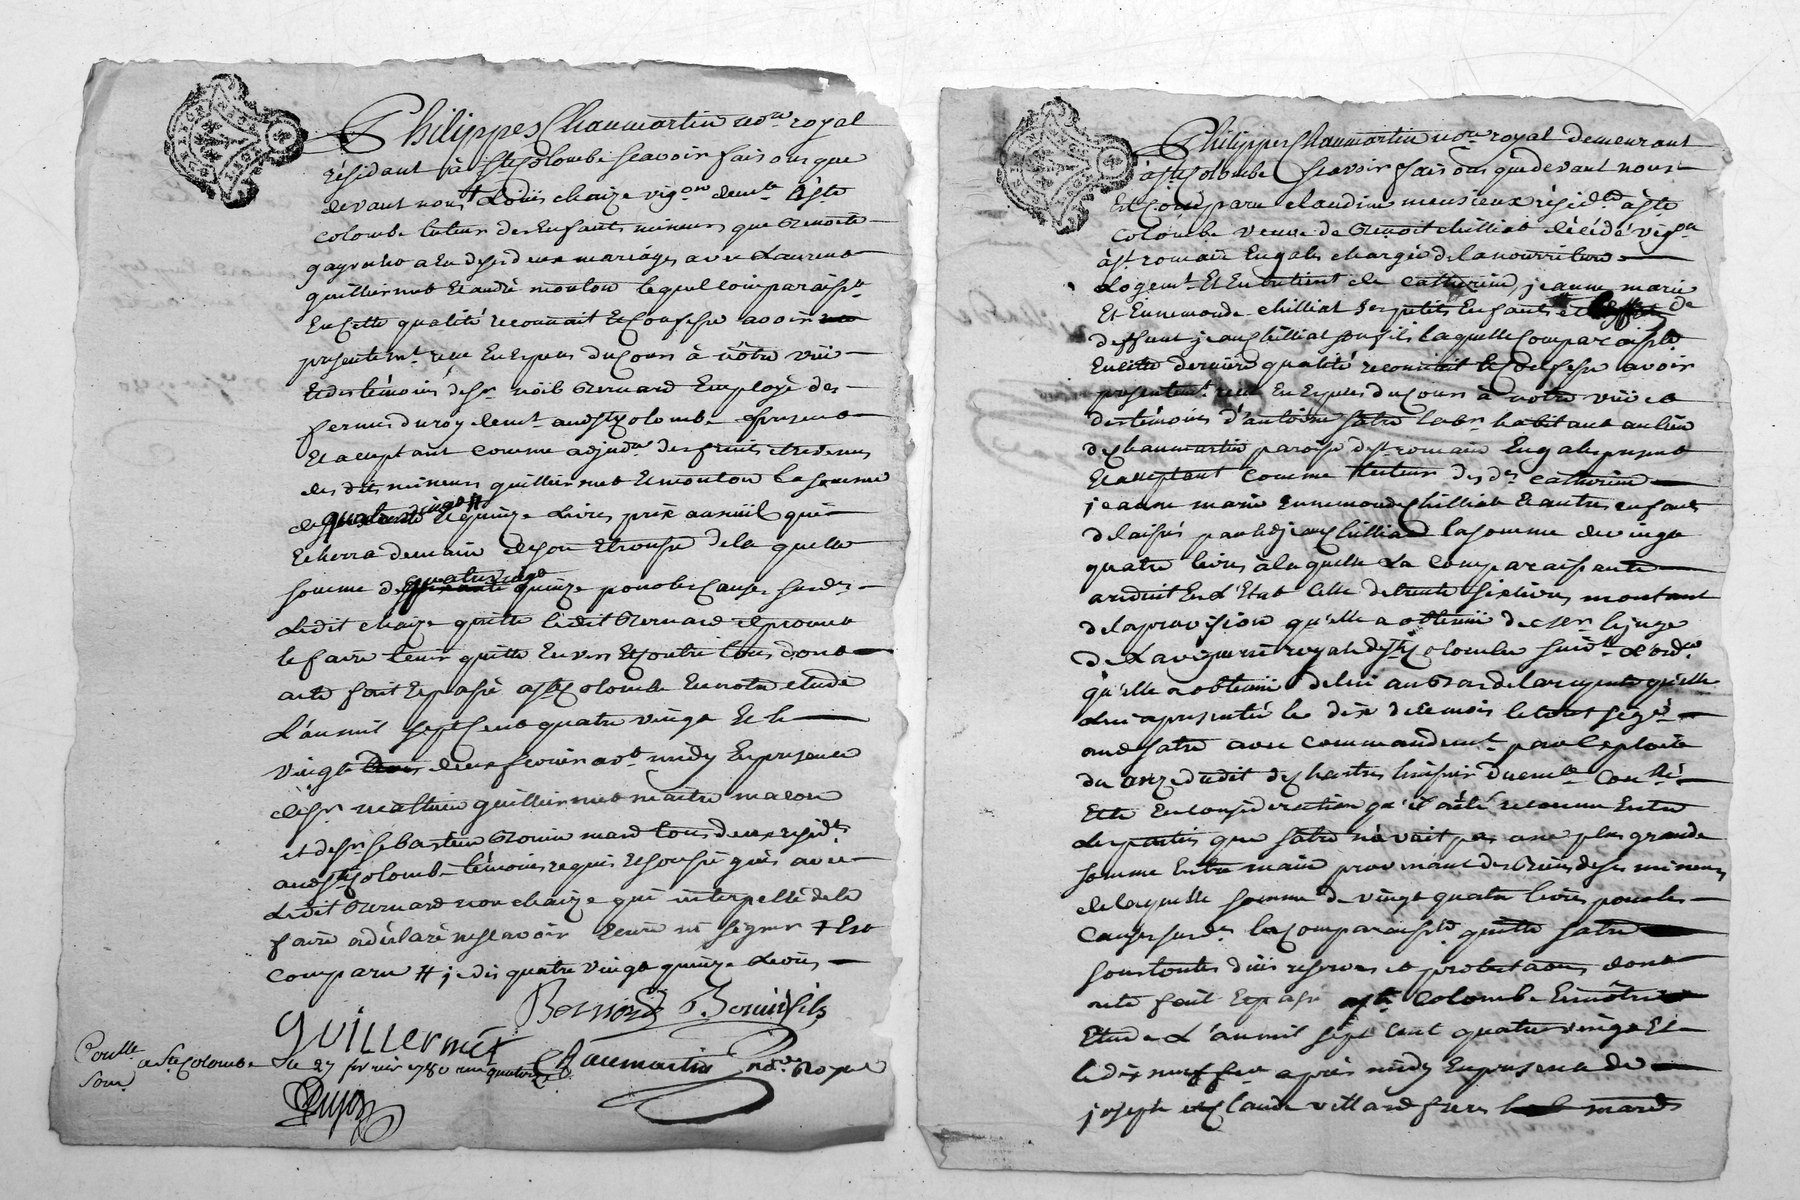 Philippes Chaumartin no.re royal
résidant à Ste Colombe scavoir faisons que
devant nous + Loüis chaize vig.on dem.t à Ste
Colombe tuteur des Enfants mineurs que Benoite
a Eu de ses deux mariages avec Laurent
guillermet Et andré mouton lequel comparaiss.t
En cette qualité reconnait Et Confesse avoir
presentem.t reçu En Especes du Cours à nôtre vüe
Et des témoins de Sr noël Bernard Employé des
fermes du roy dem.t aud Ste Colombe present
Et acceptant comme adjud.re des fruits et revenus
des dits mineurs guillermet Et mouton la somme
de quatre vingt # Et quinze Livres prix annüel qui
Echerra demain de son de la quelle
somme de quatre vingt quinze pour les Causes susd.es
Ledit chaize quitte ledit Bernard Et promet
le faire tenir quitte Envers Et Contre tous dont
acte fait Et passé à Ste Colombe En notre etude
L'an mil sept Cent quatre vingt Et le
vingt deux fevrier av.t midy En presence
de Sr mathieu guillermet maitre macon
et de Sr sebastien Bonin mard tous deux resid.ts
aud Ste Colombe témoins requis Et soussignés avec
Ledit Bernard non chaize qui interpellé de le
faire a déclaré ne scavoir Ecrire ni signer + Est
comparu # je dis quatre vingt quinze Livres
Bernard B. Bonin fils
GUILLERMET
Chaumartin no.re Royal
Con.llé à Ste Colombe le 27 fevrier 1780 reçu quatorze s.
Philippes Chaumartin no.re royal demeurant
à Ste Colombe scavoir faisons que devant nous
Est Comparu claudine meusieux résid.te à Ste
Colombe veuve de Benoit chilliat décédé vig.on
à St romain En gal chargée de la nourriture
Logem.t Et Entretient de Catherine jeanne marie
Et Ennemonde chilliat ses petits Enfants et de
deffunt jean chilliat son fils laquelle Comparaiss.te
En cette derniere qualité reconnait Et Confesse avoir
presentem.t reçu En Especes du Cours à nôtre vüe et
des témoins d'antoine satre lab.r habitant au lieu
de Chaumartin paroisse de St romain En gal present
Et acceptant comme tuteur des d.es Catherine
jeanne marie Ennemonde Chilliat Et autres enfants
delaissés par led jean Chilliat la somme de vingt
quatre livres à laquelle La Comparaissante
a réduit En L'Etat Celle de trente six livres montant
de la provision qu'elle a obtenüe de Mr le juge
de La viguerie royale de Ste Colombe suiv.t L'ord.ce
qu'elle a obtenüe de lui au bas de la requete qu'elle
Lui a presentée le dix de ce mois le tout
aud satre avec Commandem.t par Exploit
du onze dudit de chartres huissier
Et Ce En consideration qu'il a été reconnu Entre
Les parties que satre n'avoit pas une plus grande
somme Entre mains provenant des Biens de ses mineurs
de laquelle somme de vingt quatre livres pour les
Causes susd.es la Comparaiss.te quitte satre
sous toutes düës reserves et protestations dont
acte fait Et passé à Ste Colombe En nôtre
Etude L'an mil sept Cent quatre vingt Et
le dix neuf fev.er après midy En presence de
joseph et Claude villard freres mards